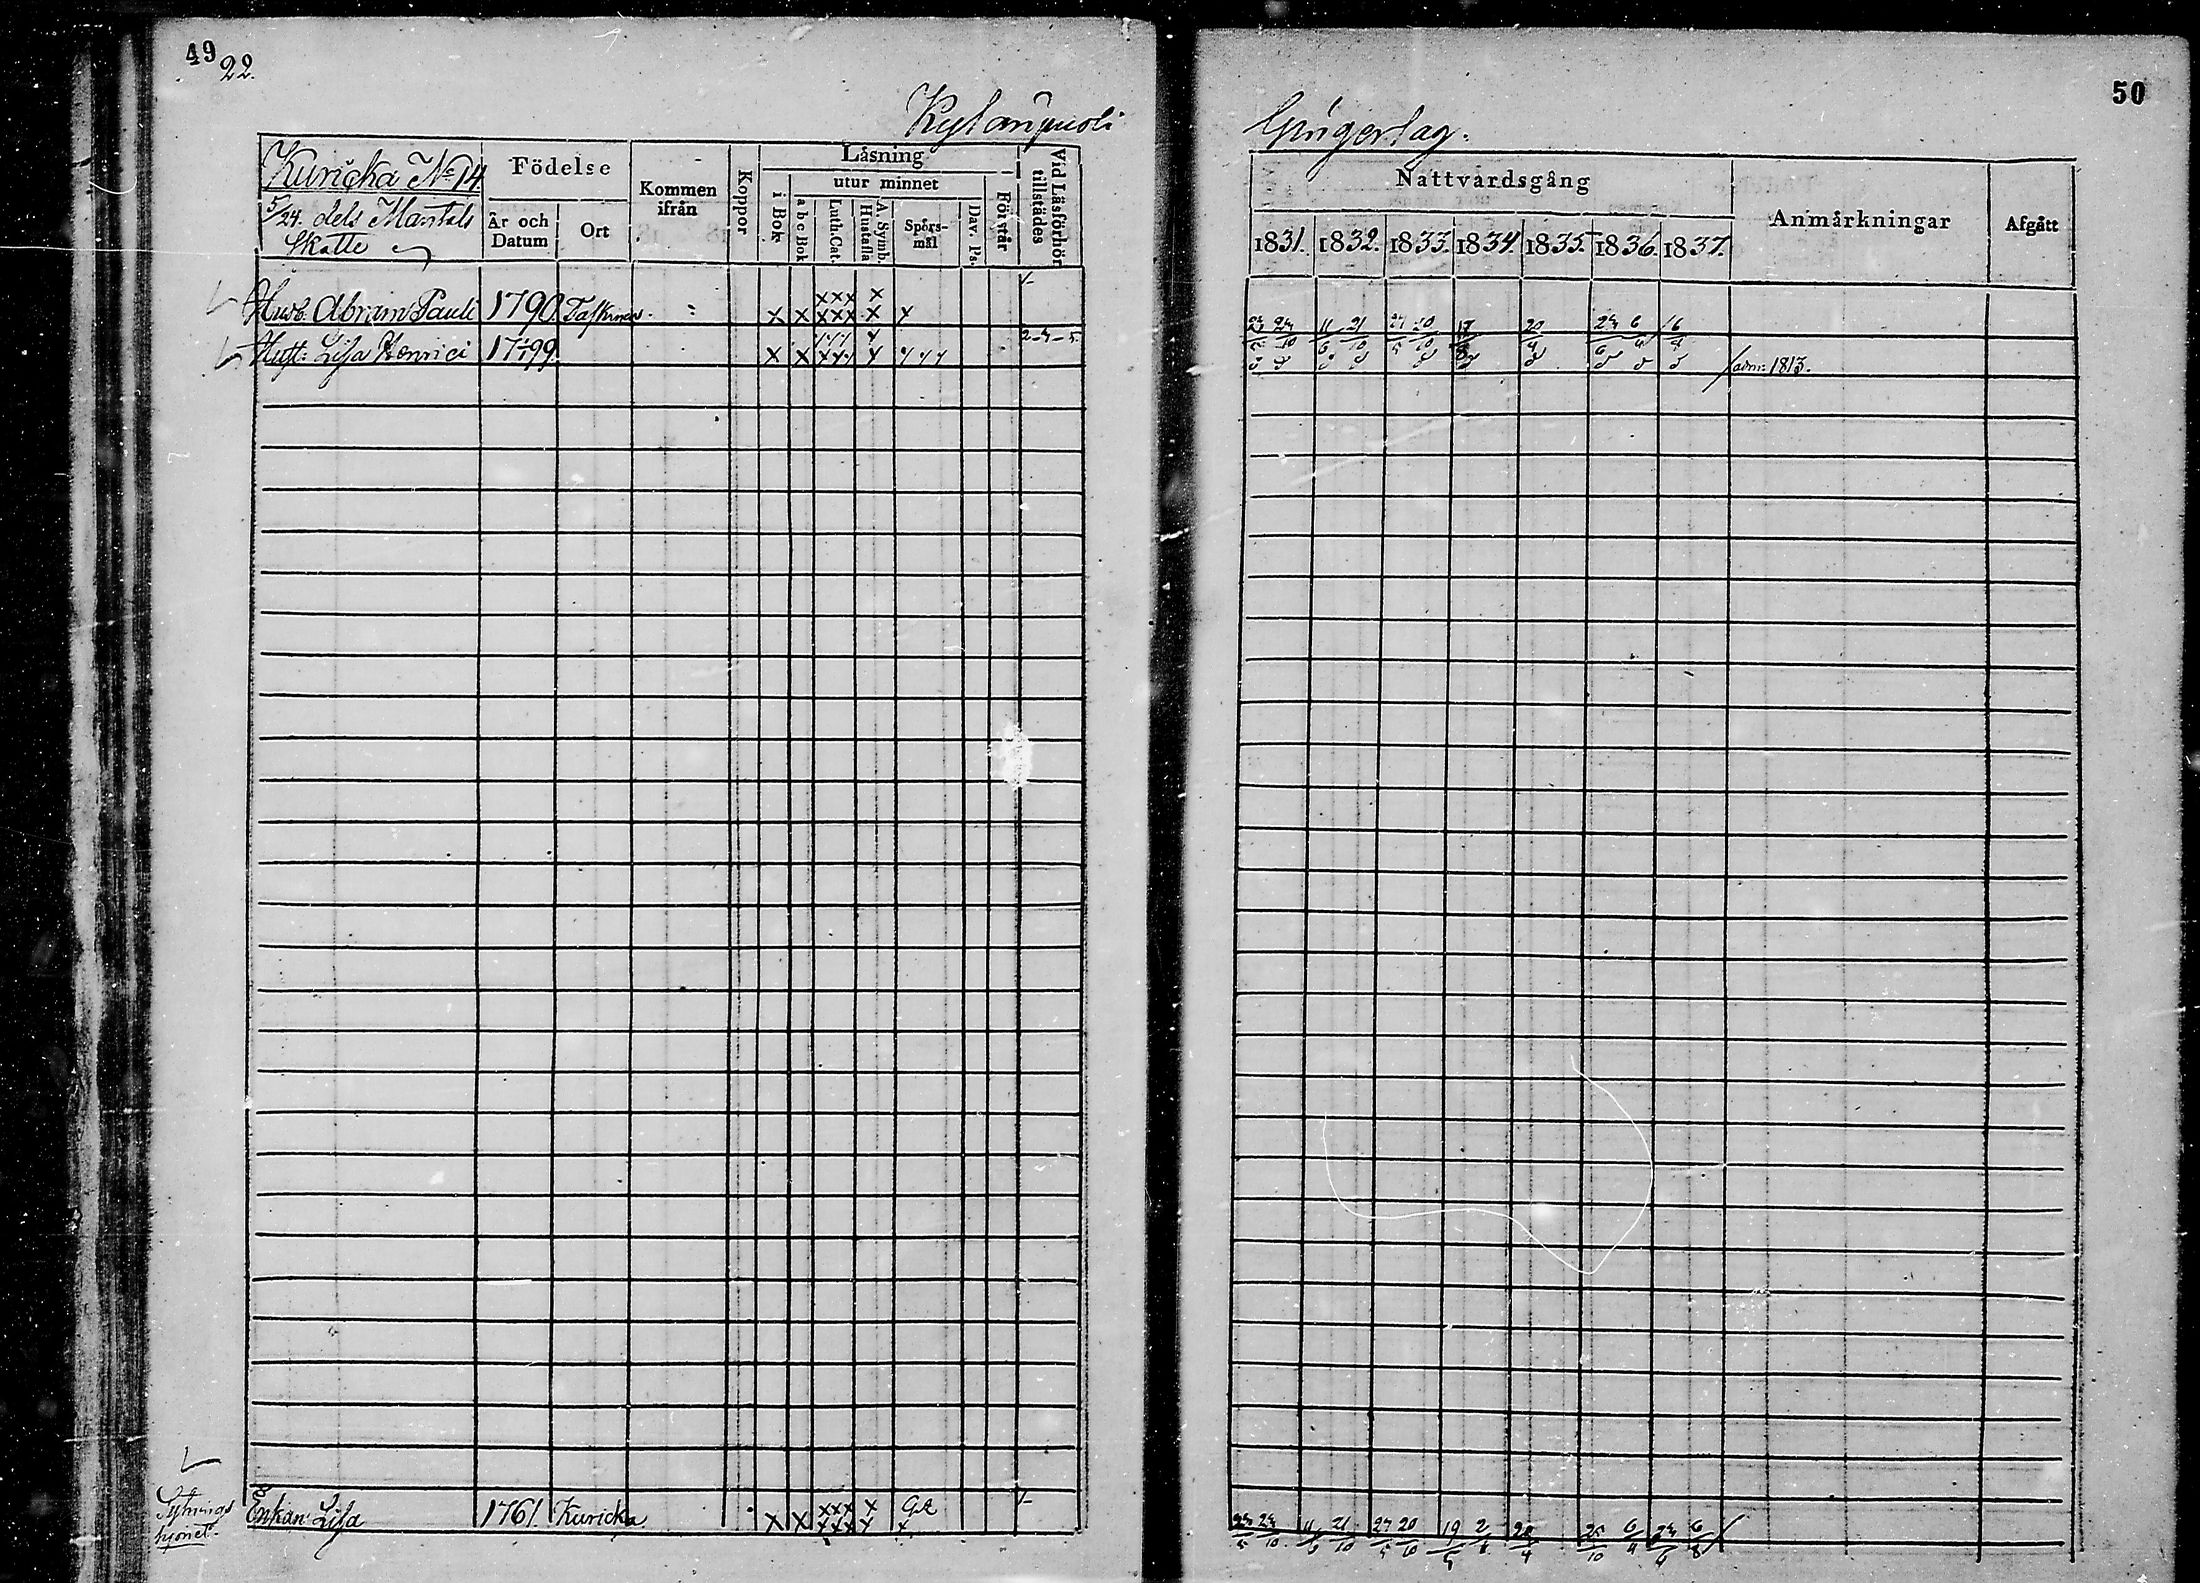 49
22.
50
Kylänpuoli
Gångerlag.
Kuricka No 14
5/24 dels Mantals
Skatte
Födelse
År och Datum
Ort
Kommen ifrån
Koppor
Läsning
i Bok
utur minnet
a b c Bok
Luth. Cat.
A. Symb. Hustafla
Spörsmål
Dav. Ps.
Förstår
Vid Läsförhör tillstädes
Nattvardsgång
1831. 1832. 1833. 1834. 1835. 1836. 1837.
Anmärkningar
Afgått
Husb. Abram Pauli 1790 x x xxx xxx x x x 24/5 24/10 11/6 21/10 27/5 20/10
Hust: Lisa Henrici 1799 x x x 2-4-5. adm: 1813.
Sytnings
hjonet.
Enkan Lisa 1761 Kuricka x x xxx xxx x x 24/5 24/10 11/6 21/10 27/5 20/10 19/5 20/4 25/10 6/4 24/6 6/8